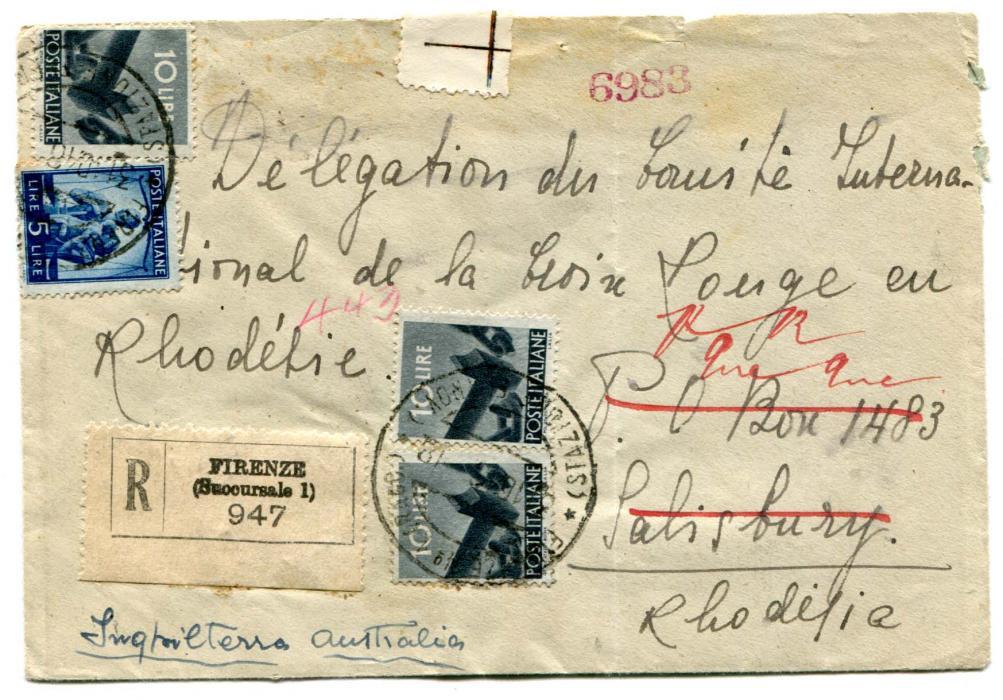 10 LIRE
POSTE ITALIANE
POSTE ITALIANE
LIRE 5 LIRE
6983
Délégation du Comité Interna-
tional de la Croix Rouge en
Rhodésie.
443
que que
P. O Box 1483
Salisbury.
Rhodésia
10 LIRE
POSTE ITALIANE
10 LIRE
POSTE ITALIANE
R
FIRENZE
(Succursale 1)
947
Inghilterra Australia